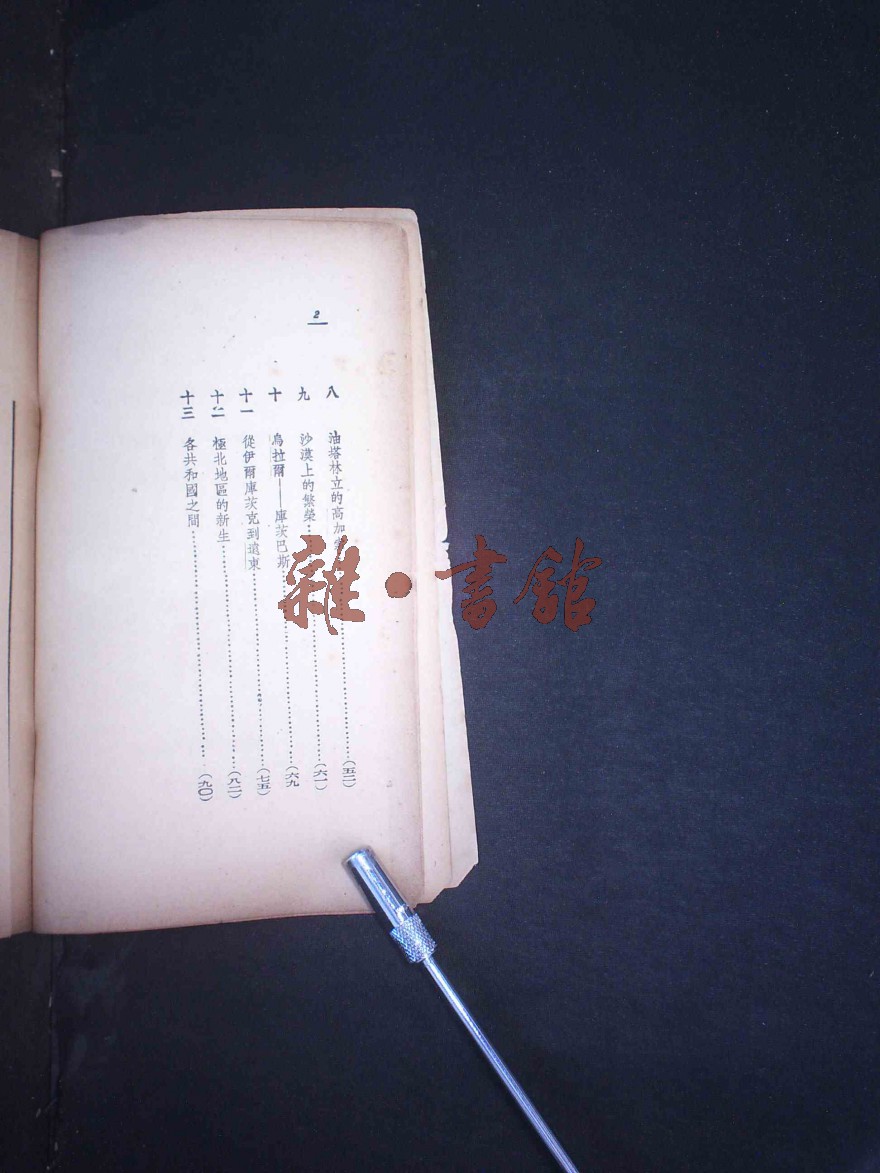 2
八 油塔林立的高加…………(五二)
九 沙漠上的繁榮…………(六一)
十 烏拉爾——庫茨巴斯…………(六九
十一 從伊爾庫茨克到遠東…………(七五)
十二 極北地區的新生…………(八二)
十三 各共和國之間…………(九〇)
雜·書館